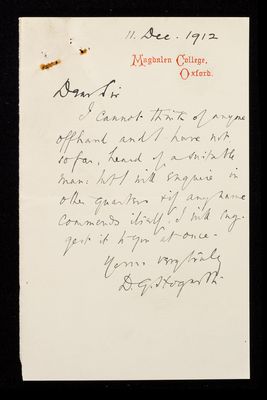 11. Dec. 1912
Magdalen College,
Oxford.
Dear Sir
I cannot think of anyone
offhand and I have not
so far, heard of a suitable
man: but I will enquire in
other quarters & if any name
commends itself, I will sug-
gest it to you at once.
Yours very truly
D.G. Hogarth